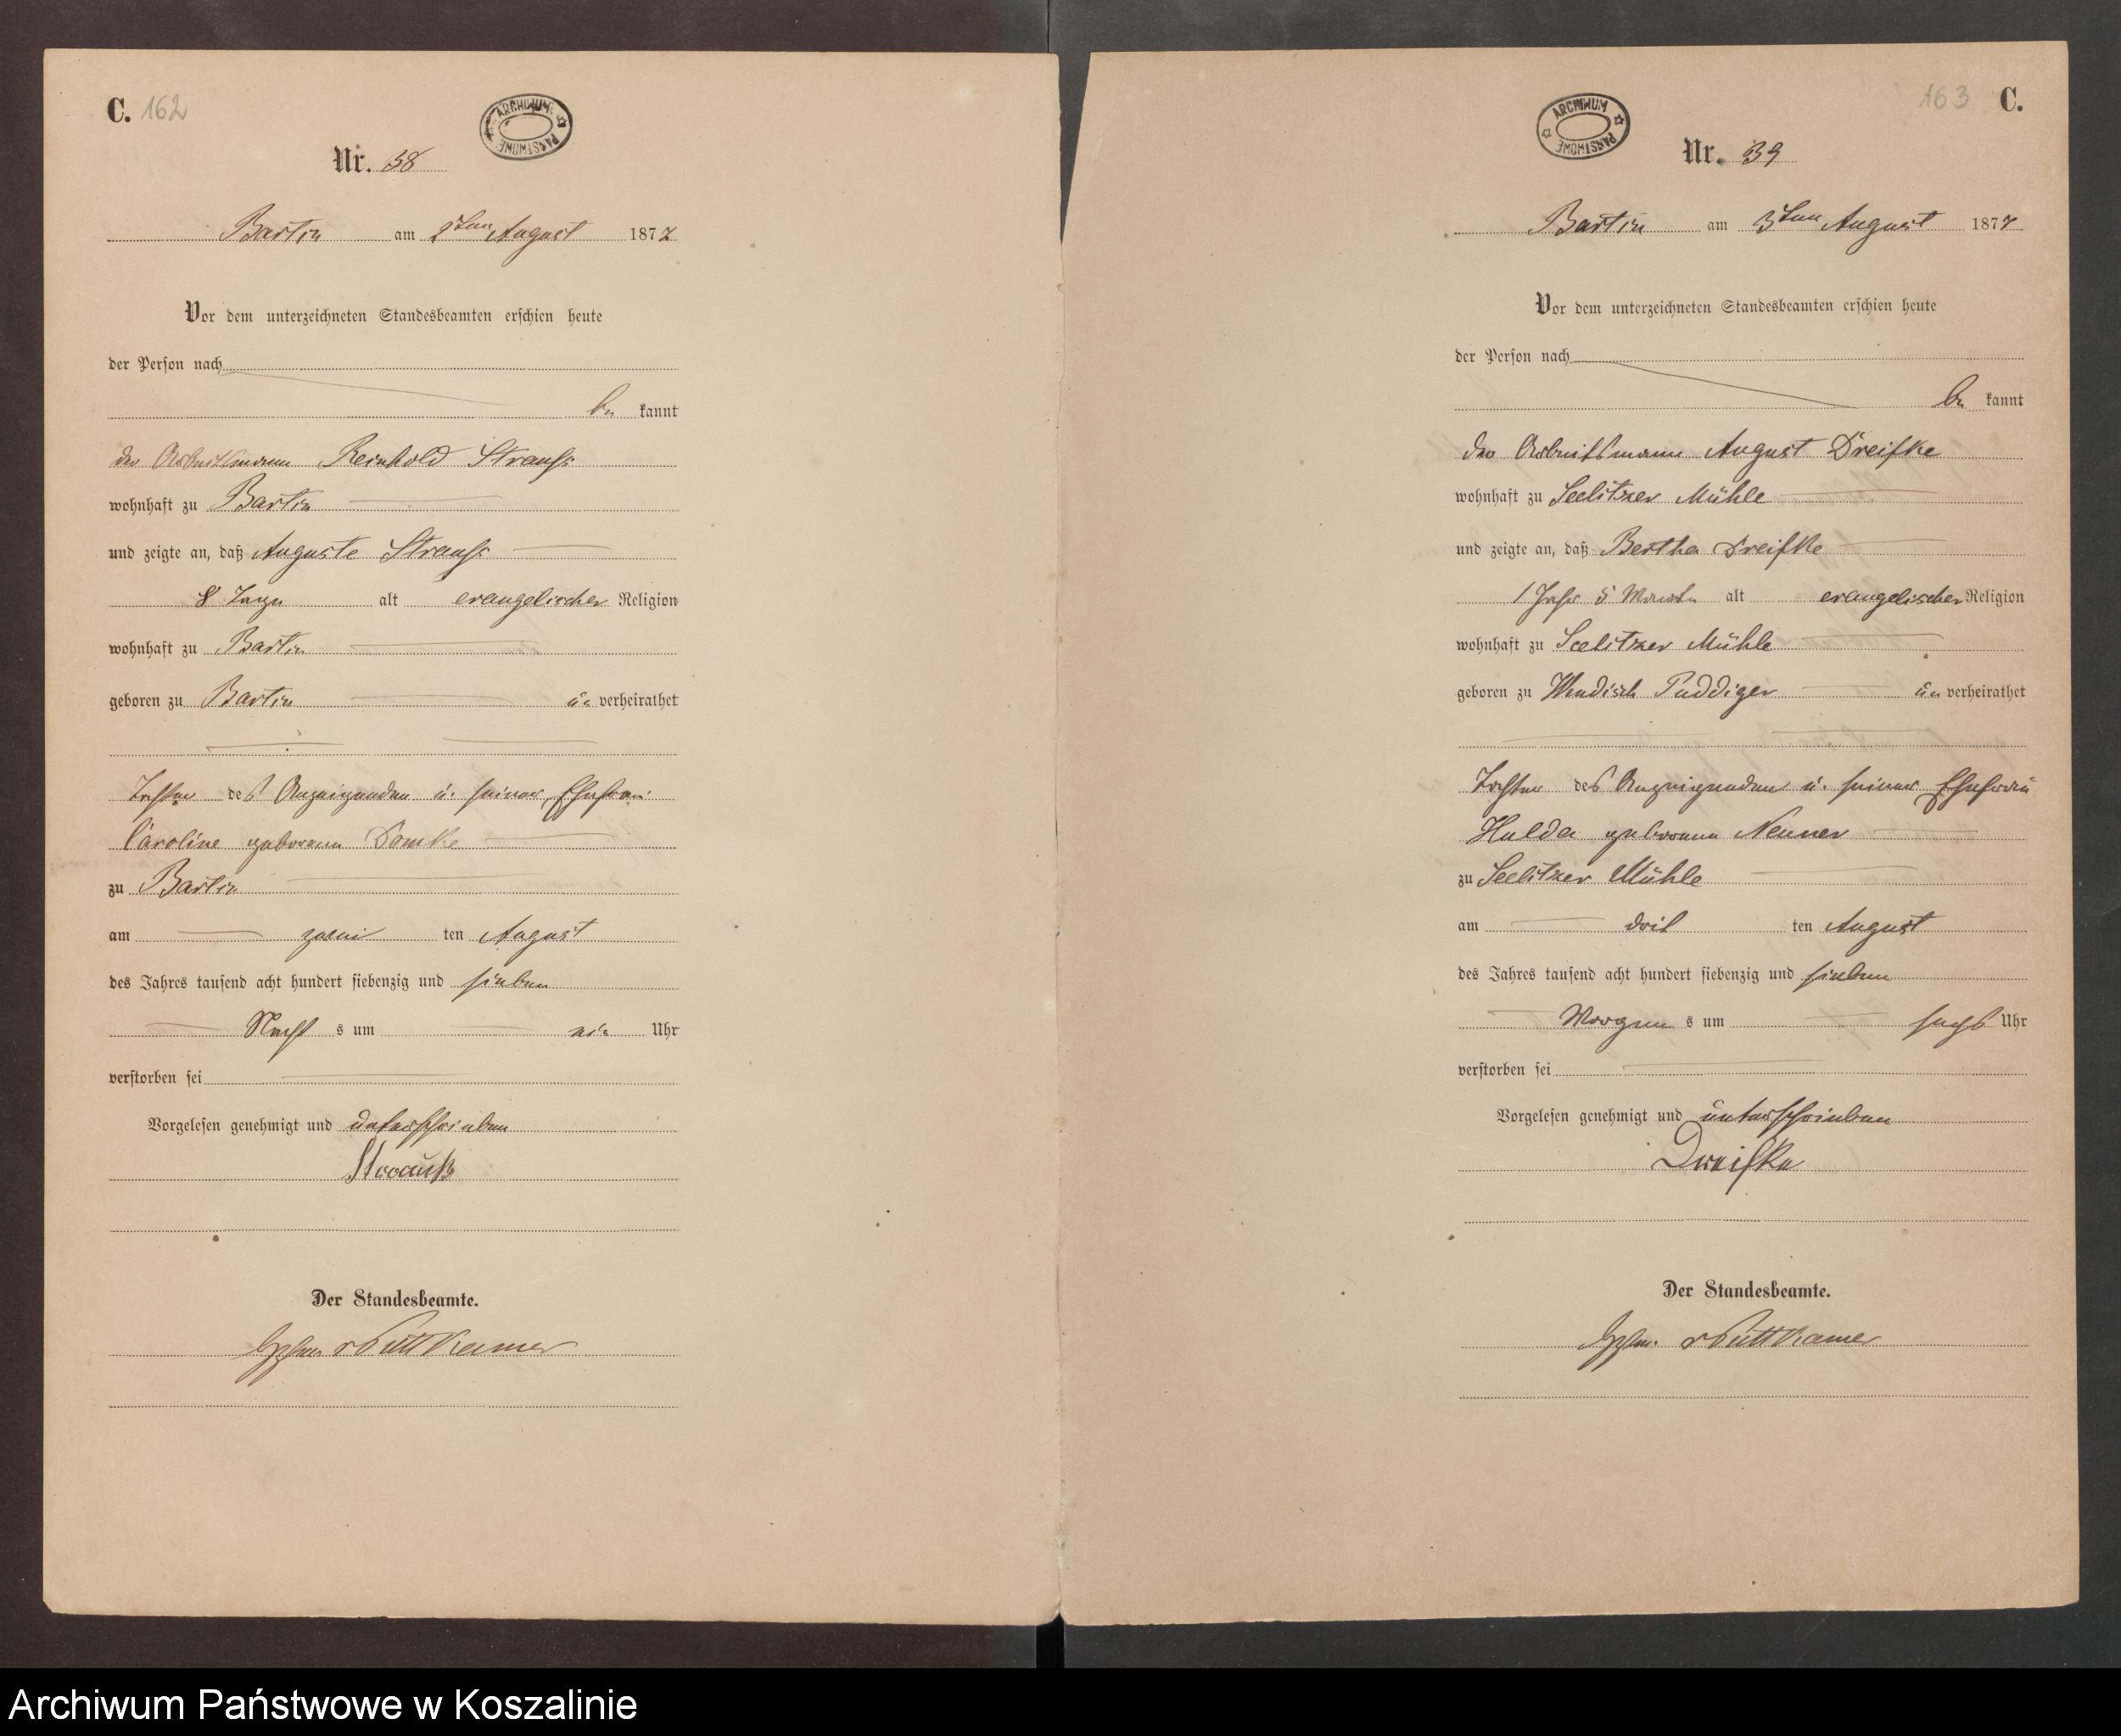 C. 162
ARCHIWUM PAŃSTWOWE
Nr. 38
Bartin am 2ten August 1877
Vor dem unterzeichneten Standesbeamten erschien heute
der Person nach
be kannt
der Arbeitsmann Reinhold Strauß
wohnhaft zu Bartin
und zeigte an, daß Auguste Strauß
8 Tage alt evangelischer Religion
wohnhaft zu Bartin
geboren zu Bartin un verheirathet
Tochter des Anzeigenden u. seiner Ehefrau
Caroline geborenen
zu Bartin
am zwei ten August
des Jahres tausend acht hundert siebenzig und sieben
Nacht s um ein Uhr
verstorben sei
Vorgelesen genehmigt und unterschrieben
Strauß
Der Standesbeamte.
v Puttkamer
163 C.
ARCHIWUM PAŃSTWOWE
Nr. 39
Bartin am 3ten August 1877
Vor dem unterzeichneten Standesbeamten erschien heute
der Person nach
be kannt
der Arbeitsmann August Dreifke
wohnhaft zu Seelitzer Mühle
und zeigte an, daß Bertha Dreifke
1 Jahr 5 Monate alt evangelischer Religion
wohnhaft zu Seelitzer Mühle
geboren zu Wendisch Puddiger un verheirathet
Tochter des Anzeigenden u. seiner Ehefrau
Hulda geborenen Neuner
zu Seelitzer Mühle
am drit ten August
des Jahres tausend acht hundert siebenzig und sieben
Morgen s um sechs Uhr
verstorben sei
Vorgelesen genehmigt und unterschrieben
Dreifke
Der Standesbeamte.
v Puttkamer
Archiwum Państwowe w Koszalinie